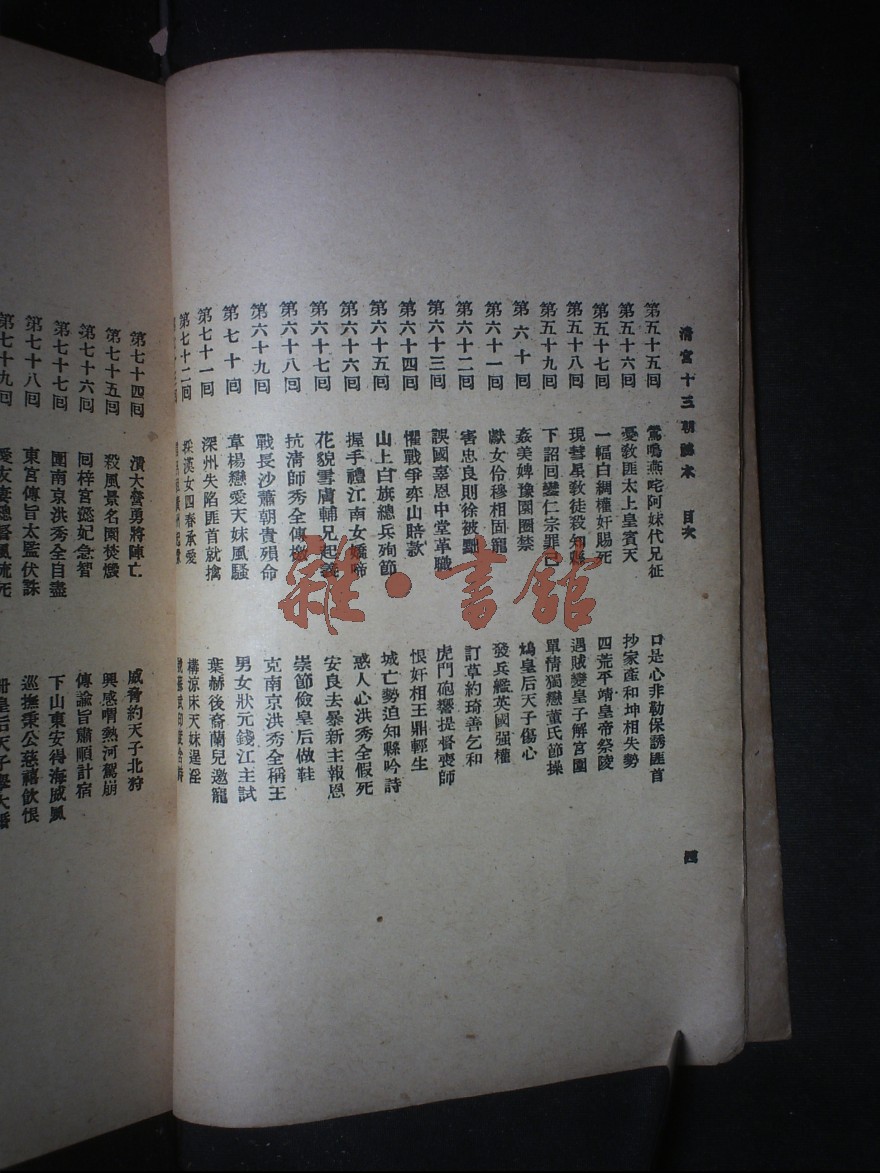 清宮十三朝 目次
第五十五回 鶯鳴燕咤阿妹代兄征 口是心非勒保誘匪首
第五十六回 憂敎匪太上皇賓天 抄家產和坤相失勢
第五十七回 一幅白綢權奸賜死 四荒平靖皇帝祭陵
第五十八回 現彗星敎徒殺知縣 遇賊變皇子解宮圍
第五十九回 下詔回鑾仁宗罪己 單情獨戀董氏節操
第六十回 姦美婢豫園圈禁 鴆皇后天子傷心
第六十一回 獻女伶穆相固寵 發兵艦英國强權
第六十二回 害忠良則徐被 訂草約琦善乞和
第六十三回 誤國辜恩中堂革職 虎門砲響提督喪師
第六十四回 懼戰爭弈山賠款 恨奸相王鼎輕生
第六十五回 山上白旗總兵殉節 城亡勢迫知縣吟詩
第六十六回 握手禮江南女嬌啼 惑人心洪秀全假死
第六十七回 花貌雪膚輔兄起義 安良去暴新主報恩
第六十八回 抗清師秀全傳檄 崇節儉皇后做鞋
第六十九回 戰長沙蕭朝貴殞命 克南京洪秀全稱王
第七十回 韋楊戀愛天妹風騷 男女狀元錢江主試
第七十一回 深州失陷匪首就擒 葉赫後裔蘭兒邀寵
第七十二回 採漢女四春承愛 構涼床天妹逞淫
四
雜・書館
第七十四回 潰大營勇將陣亡 威脅約天子北狩
第七十五回 殺風景名園焚燬 興感喟熱河駕崩
第七十六回 回梓宮懿妃急智 傳諭旨肅順計宿
第七十七回 圍南京洪秀全自盡 下山東安得海威風
第七十八回 東宮傳旨太監伏誅 巡撫秉公慈禧飲恨
第七十九回